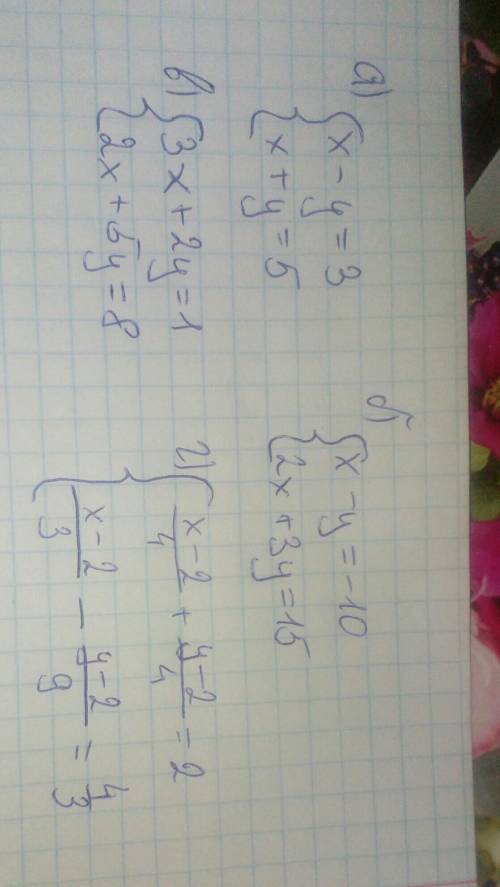 а) { x - y = 3
x + y = 5
б) { x - y = -10
2x + 3y = 15
в) { 3x + 2y = 1
2x + 5y = 8
г) { (x - 2)/4 + (y - 2)/4 = 2
(x - 2)/3 - (y - 2)/9 = 4/3